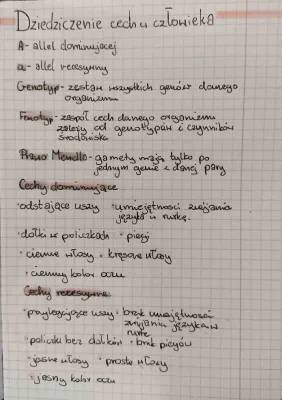 Dziedziczenie cech u człowieka
A - allel dominującej
a - allel recesywny
Genotyp - zestaw wszystkich genów danego
organizmu
Fenotyp - zespół cech danego organizmu
zależy od genotypów i czynników
środowiska
Prawo Mendla - gamety mają tylko po
jednym genie z danej pary
Cechy dominujące
• odstające uszy • umiejętności zwijania
języka w rurkę.
• dołki w policzkach • piegi
• ciemne włosy • kręcone włosy
• ciemny kolor oczu
Cechy recesywne
• przylegające uszy • brak umiejętności
zwijania języka w
rurkę
• policzki bez dołków • brak piegów
• jasne włosy • proste włosy
• jasny kolor oczu